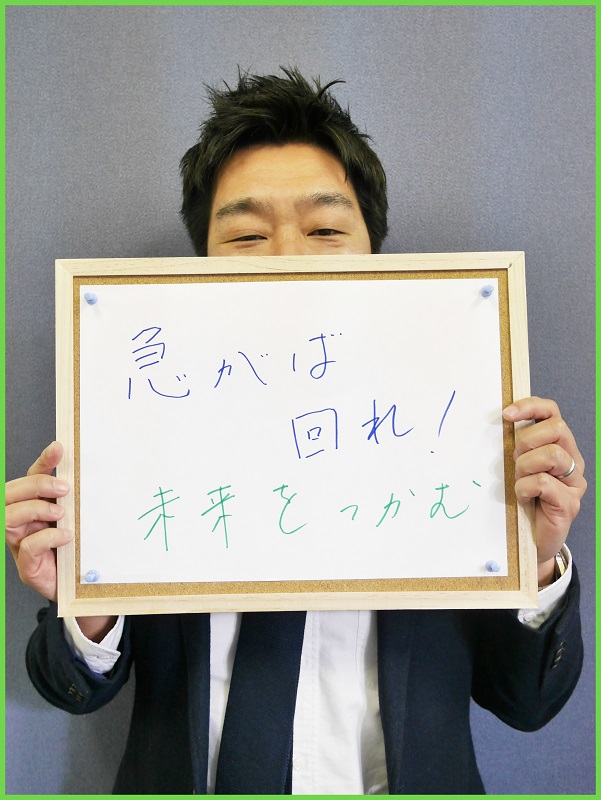 急がば
回れ!
未来をつかむ